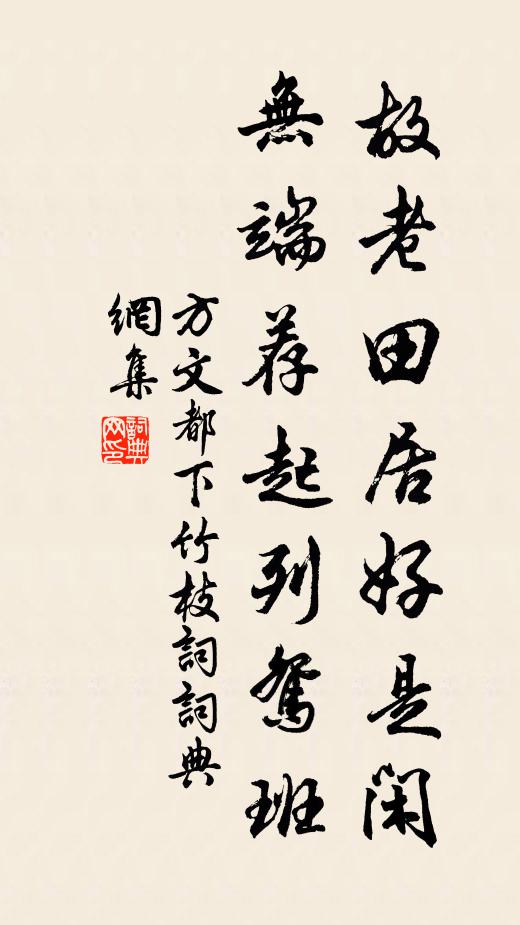 故老田居好是閑
無端荐起列鴛班
方文都下竹枝詞詞典
網集
詞典
网印